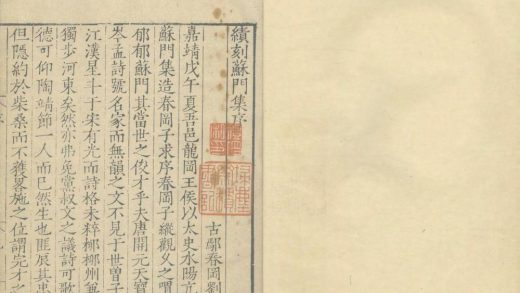 續刻蘇門集序
古鄢春岡劉
嘉靖戊午夏吾邑龍岡王侯以太史水陽亢
蘇門集造春岡子求序春岡子縱觀久之喟
郁郁蘇門其當世之俊才乎夫唐開元天寶
岑孟詩號名家而無韻之文不見于世曽子
江漢星斗于宋有光而詩格未粹柳州兼
獨步河東矣然亦弗免黨叔文之議詩可歌
德可仰陶靖節一人而已然生也匪辰其忠
但隱約於柴桑而不獲畧施之位謂完才之